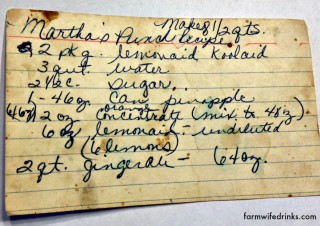 Makes 1 1/2 qts.
Martha's Punch recipe
2 pkg. lemonaid Koolaid
3 qut. water
2 1/2 c. sugar..
1 - 46 oz. Can pineapple
orange
(6 oz) 12 oz Concentrate (mix to 48 oz)
6 oz lemonaid - undiluted
(6 lemons)
2 qt. gingerale - 64 oz.
farmwifedrinks.com